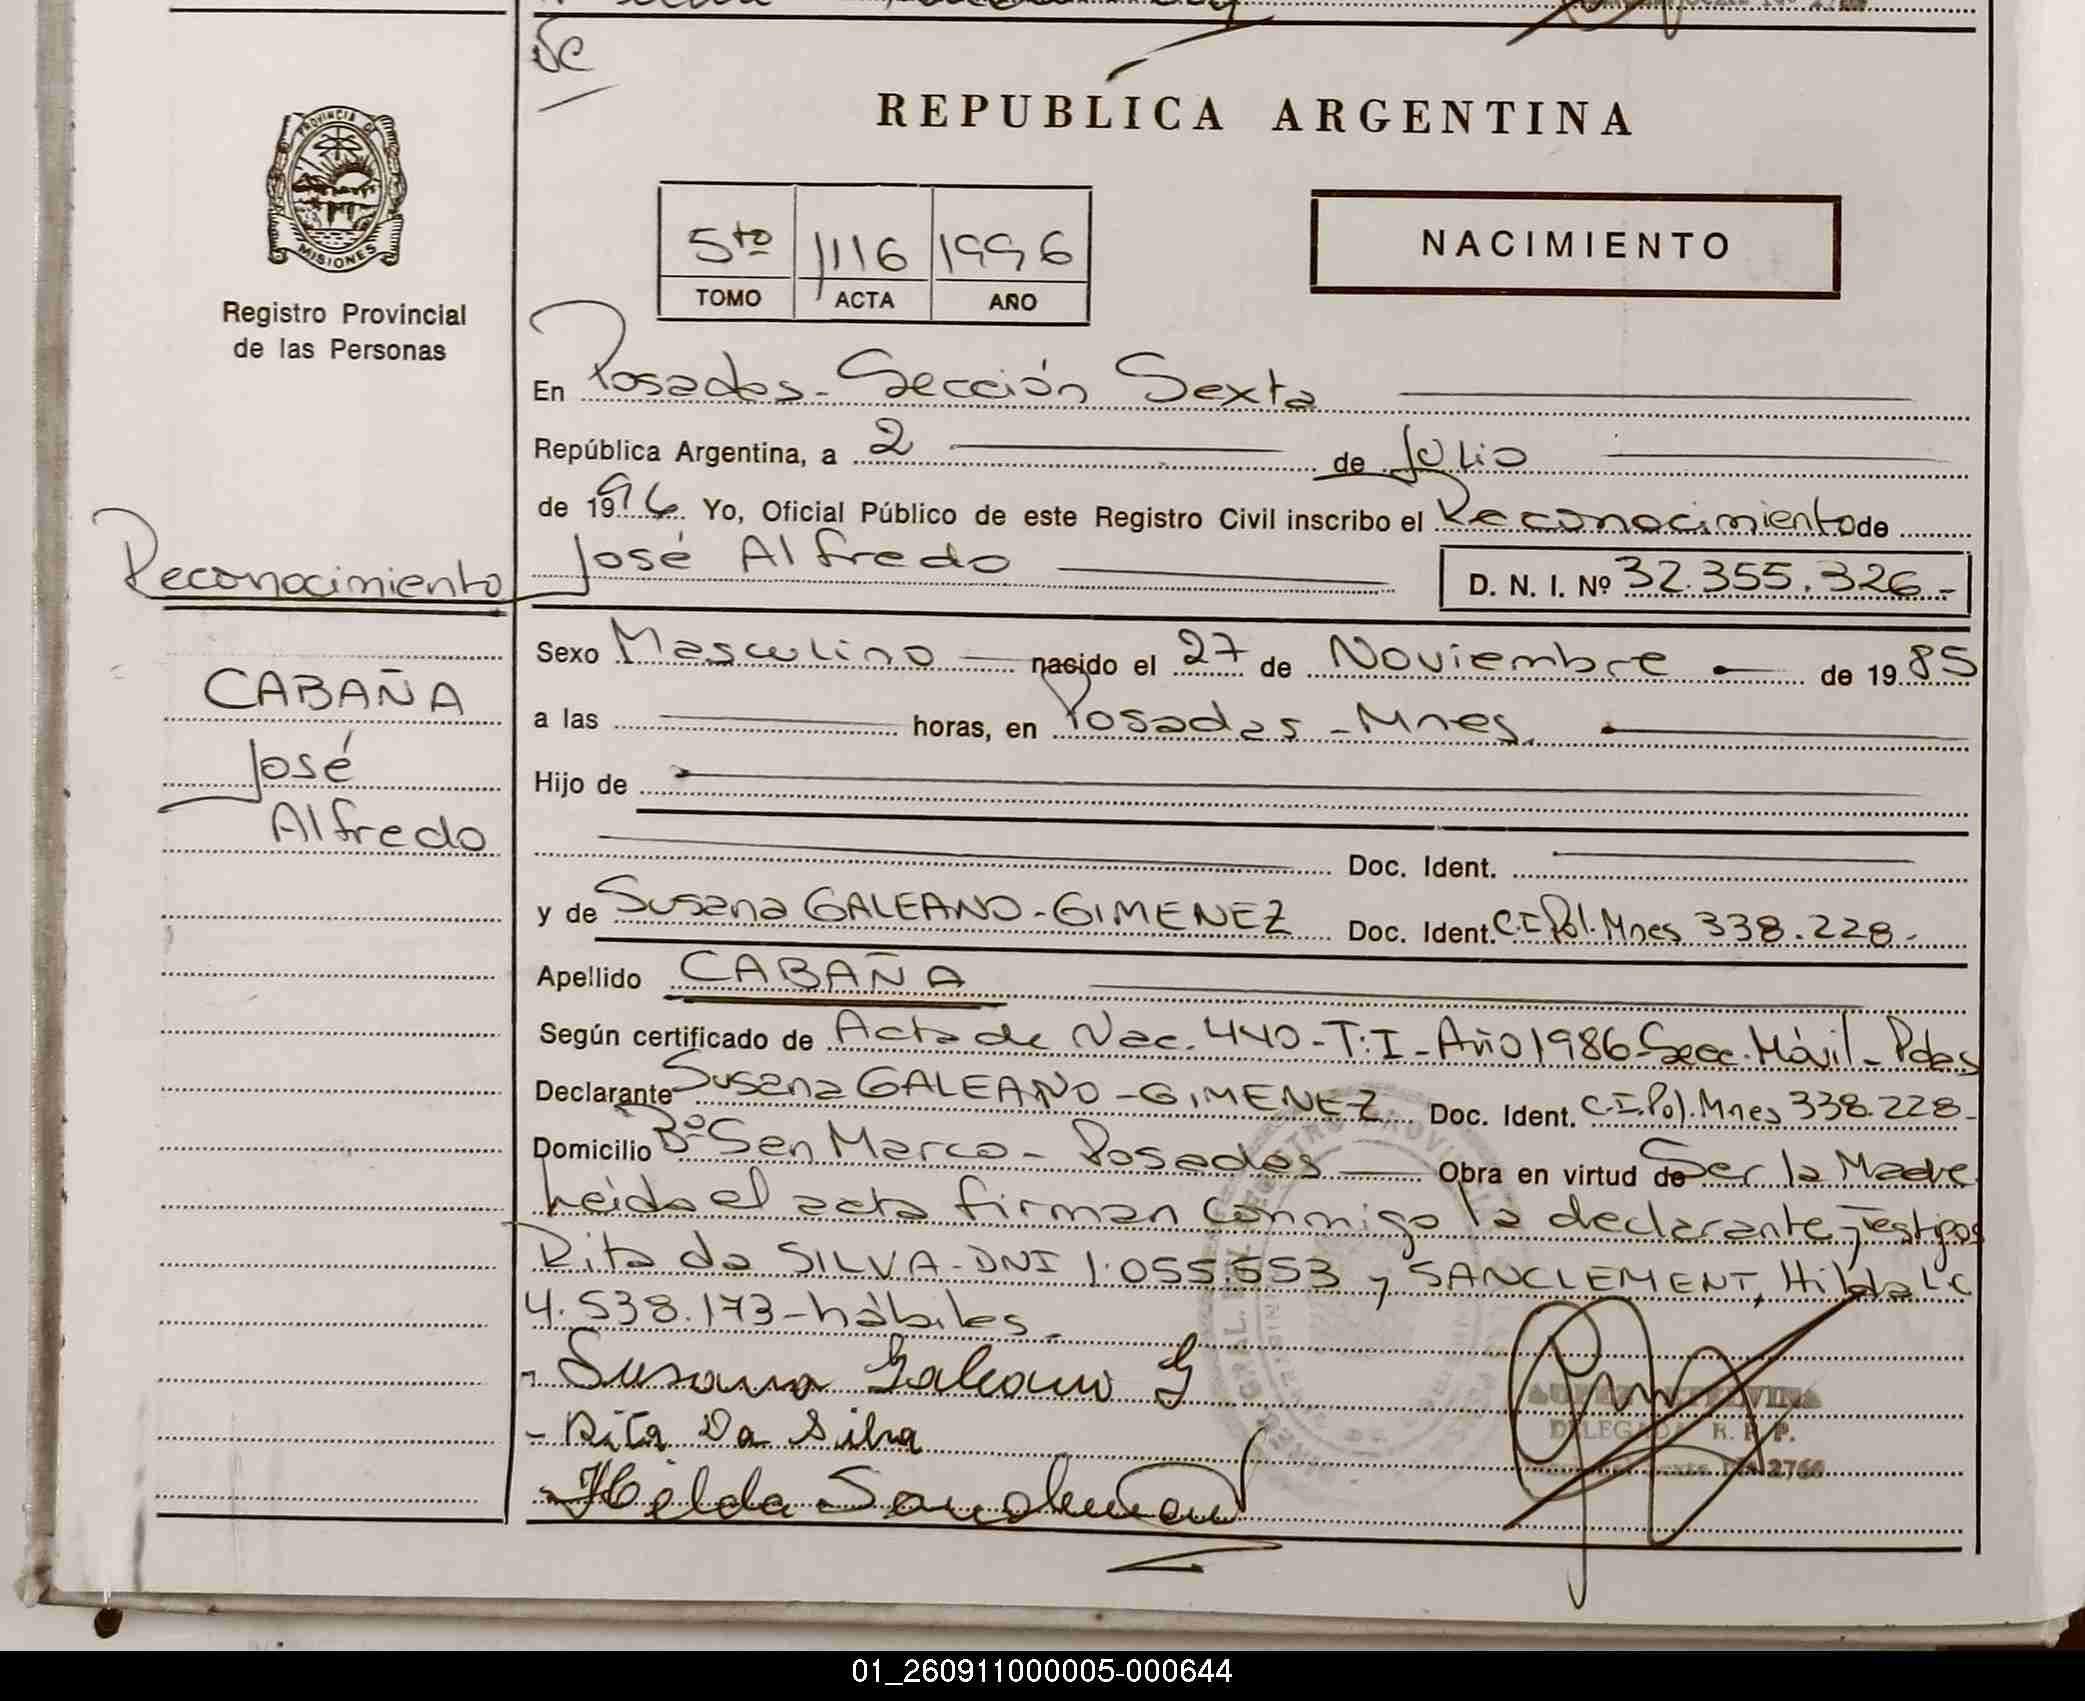 REPUBLICA ARGENTINA
PROVINCIA DE MISIONES
Registro Provincial
de las Personas
5to 1116 1996
TOMO ACTA AÑO
NACIMIENTO
En Posadas - Sección Sexta
República Argentina, a 2 de Julio
de 1996 Yo, Oficial Público de este Registro Civil inscribo el Reconocimiento de
José Alfredo D. N. I. Nº 32.355.326.-
Reconocimiento
CABAÑA
José
Alfredo
Sexo Masculino nacido el 27 de Noviembre de 1985
a las horas, en Posadas - Mnes.
Hijo de
Doc. Ident.
y de Susana GALEANO - GIMENEZ Doc. Ident. C.I. Pol. Mnes 338.228.-
Apellido CABAÑA
Según certificado de Acta de Nac. 440 - T: I - Año 1986 - Secc. Móvil - Pdas
Declarante Susana GALEANO - GIMENEZ Doc. Ident. C.I. Pol. Mnes 338.228-
Domicilio Bº San Marco - Posadas Obra en virtud de Ser la Madre
Leida el acta firman conmigo la declarante y testigos
Rita da SILVA - DNI 1.055.553 y SANCLEMENT, Hilda L.C
4.538.173 - hábiles.
- Susana Galeano G
- Rita Da Silva
- Hilda Sanclement
R. P. P.
2766
01_260911000005-000644